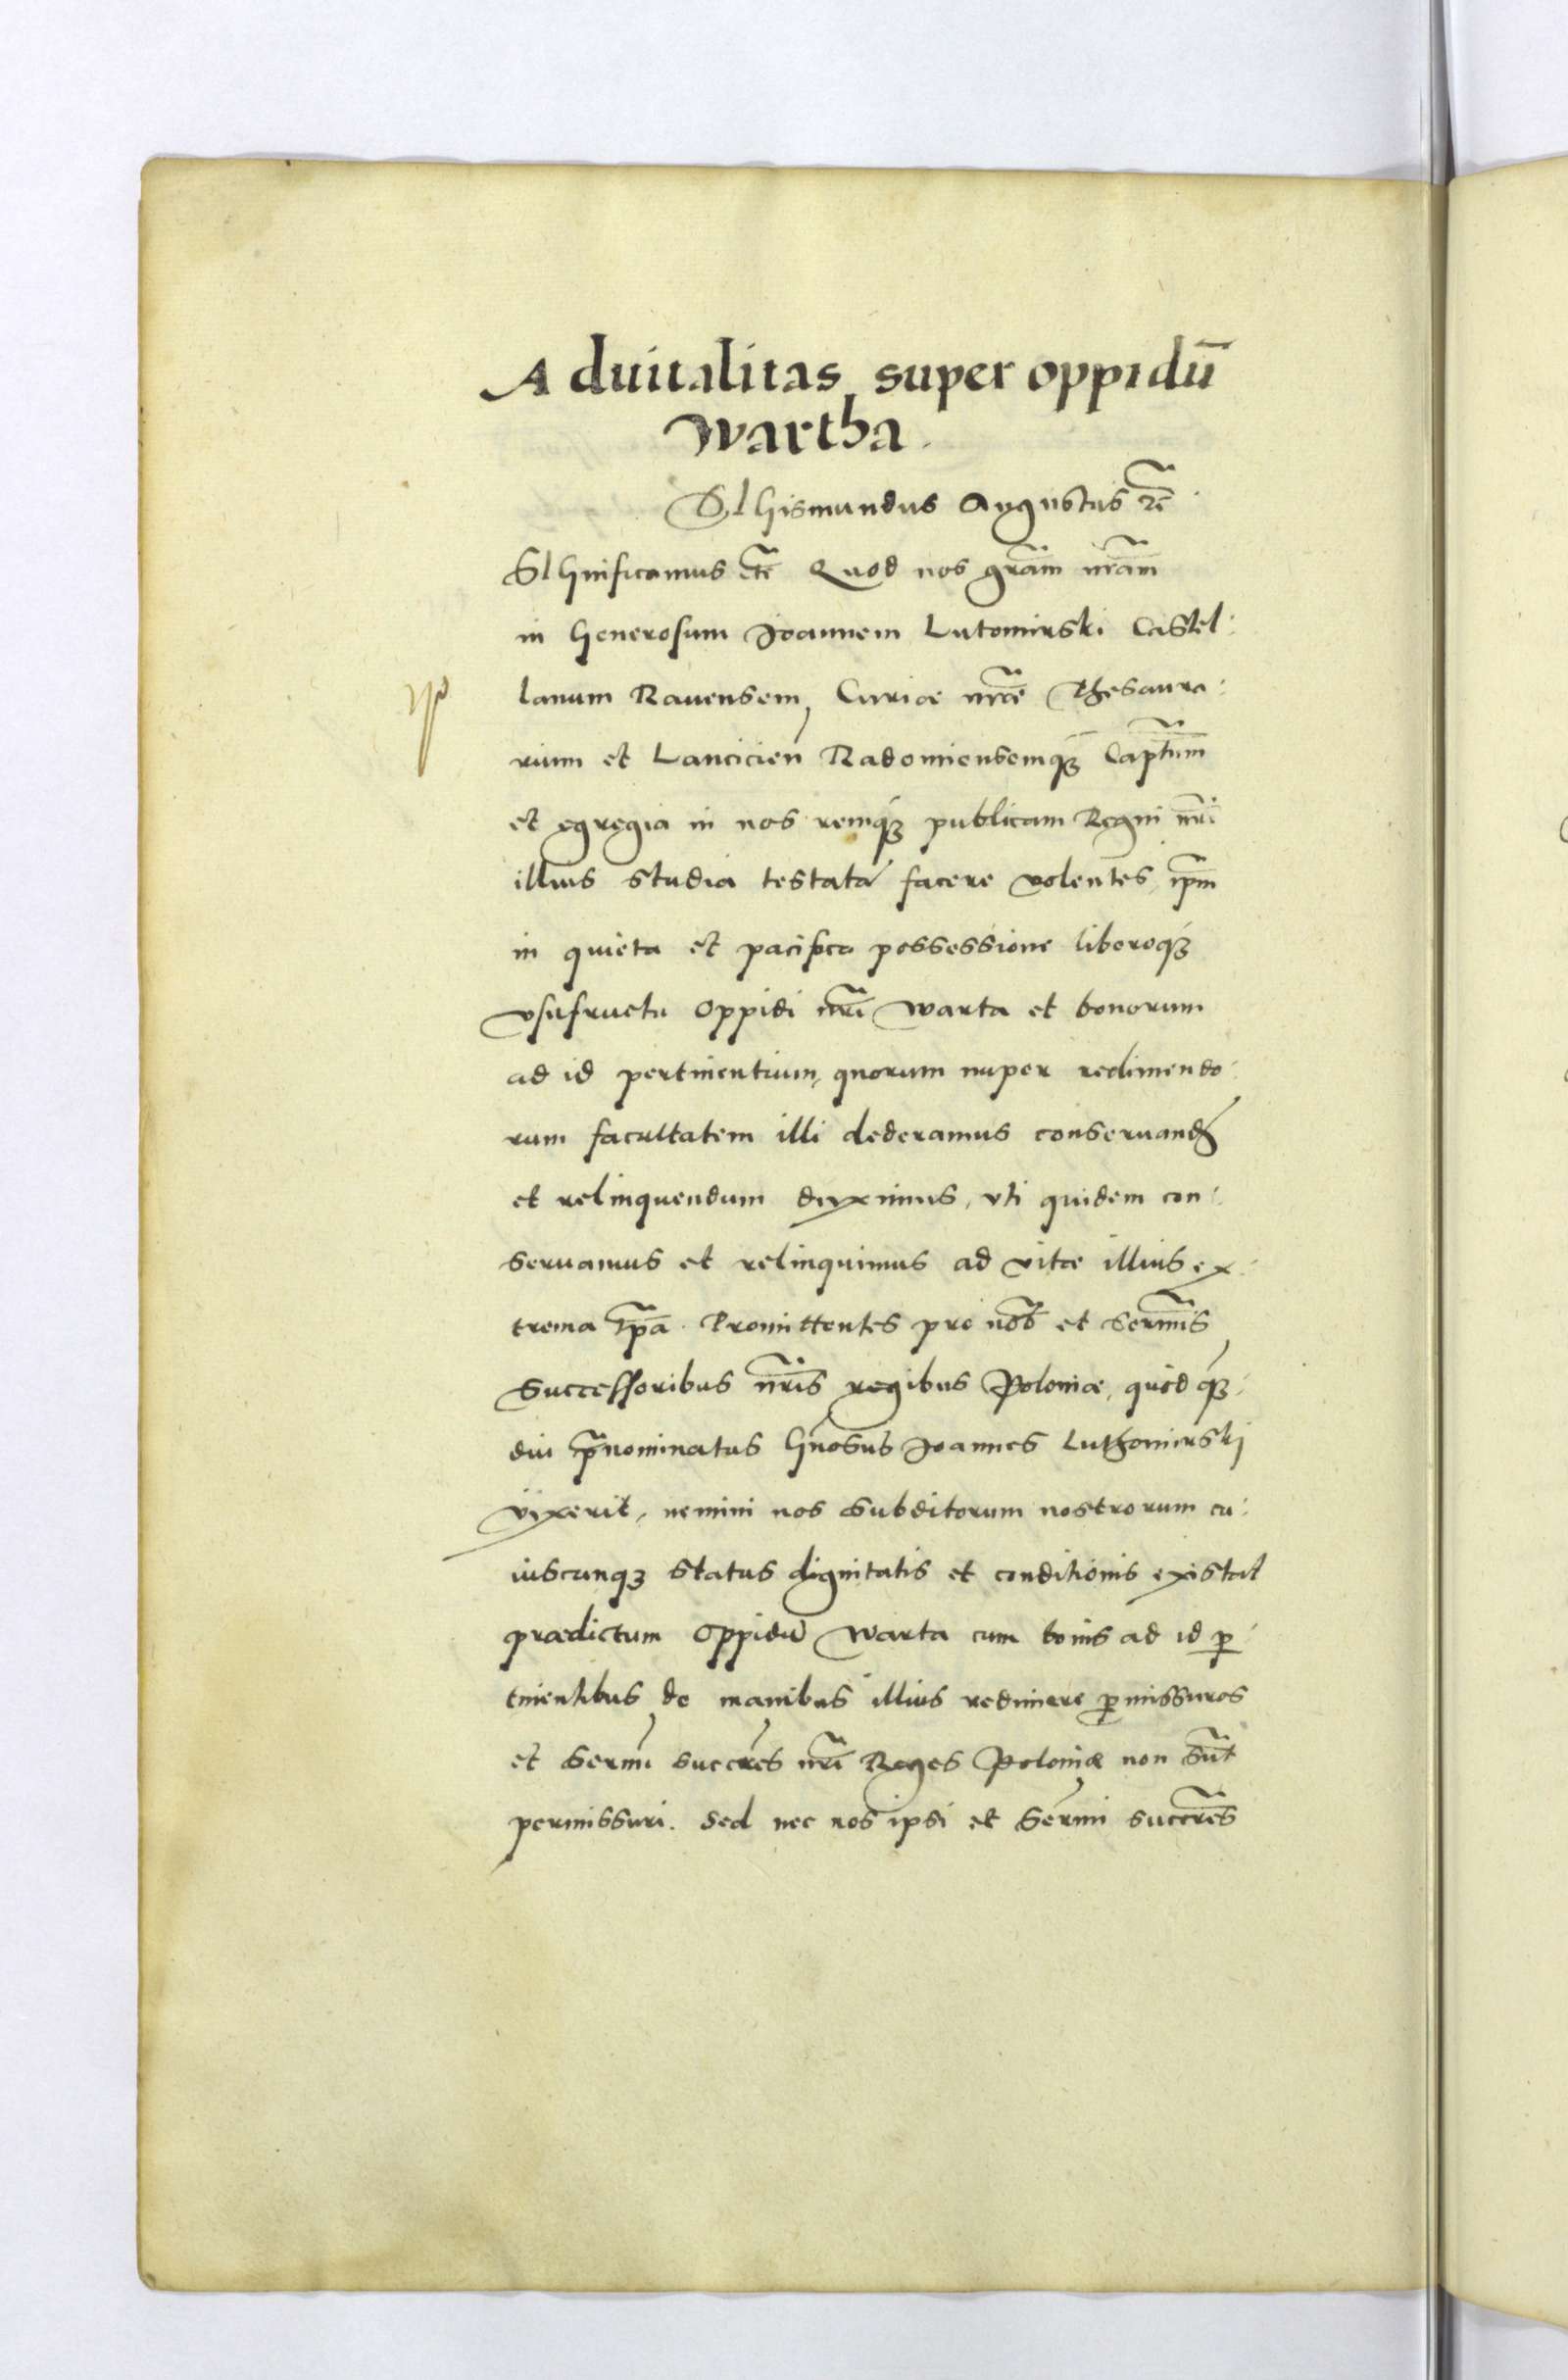 Aduitalitas super oppidū
Wartha.
SIGismundus Augustus rē
SIGnificamus etc̃ Quod nos grãm nrãm
in Generosum Joannem Lutomirski Castel:
lanum Rauensem, Curiæ nræ̃ Thesaura:
rium et Lancicieñ Radomiensemq3 Capt̃um
et egregia in nos remq3 publicam Regni nrĩ
illius studia testatã facere volentes, ip̃m
in quieta et pacifica possessione liberoq3
vsufructu oppidi nrĩ Warta et bonorum
ad id pertinentium, quorum nuper redimendo:
rum facultatem illi dederamus conseruand̃
et relinquendum duximus, vti quidem con:
seruamus et relinquimus ad vitæ illius ex:
trema tp̃a. Promittentes pro nob̃ et Serm̃is
Successoribus nrĩs regibus Poloniæ, quod q̃3:
diu p̃nominatus Gñosus Joannes Luthomirskj
vixerit, nemini nos subditorum nostrorum cu:
iuscunq3 status dignitatis et conditionis existat
prædictum oppidũ Warta cum bonis ad id p̱:
tinentibus de manibus illius redimere p̱missuros
et Serm̃i succr̃es nrĩ Reges Poloniæ non sũt
permissuri. Sed nec nos ipsi et Serm̃i succr̃es